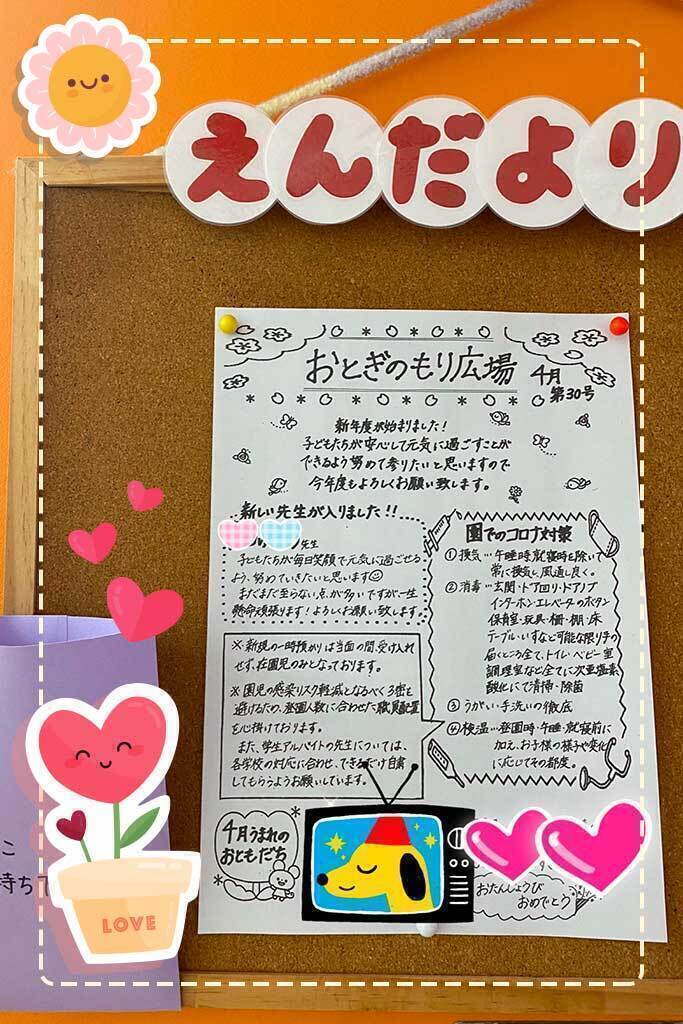 えんだより
おとぎのもり広場 4月
第30号
新年度が始まりました!
子どもたちが安心して元気に過ごすことが
できるよう努めて参りたいと思いますので
今年度もよろしくお願い致します。
新しい先生が入りました!!
先生
子どもたちが毎日笑顔で元気に過ごせる
よう、努めていきたいと思います
まだまだ至らない点が多いですが一生
懸命頑張ります!よろしくお願い致します。
※新規の一時預かりは当面の間、受け入れ
せず、在園児のみとなっております。
※園児の感染リスク軽減となるべく3密を
避けるため、登園人数に合わせた職員配置
を心掛けております。
また、学生アルバイトの先生については、
各学校の対応に合わせ、できるだけ自粛
してもらうようお願いしています。
園でのコロナ対策
①換気…午睡時、就寝時を除いて
常に換気し、風通し良く。
②消毒…玄関・ドア回り・ドアノブ
インターホン・エレベーターのボタン
保育室・玩具・柵・棚・床
テーブル・いすなど可能な限り手の
届くところ全て、トイレ・ベビー室
調理室など全てに次亜塩素
酸化にて清掃・除菌
③うがい・手洗いの徹底
④検温…登園時・午睡・就寝前に
加え、お子様の様子や変化
に応じてその都度。
4月うまれの
おともだち
おたんじょうび
おめでとう
LOVE
こ
持ちて